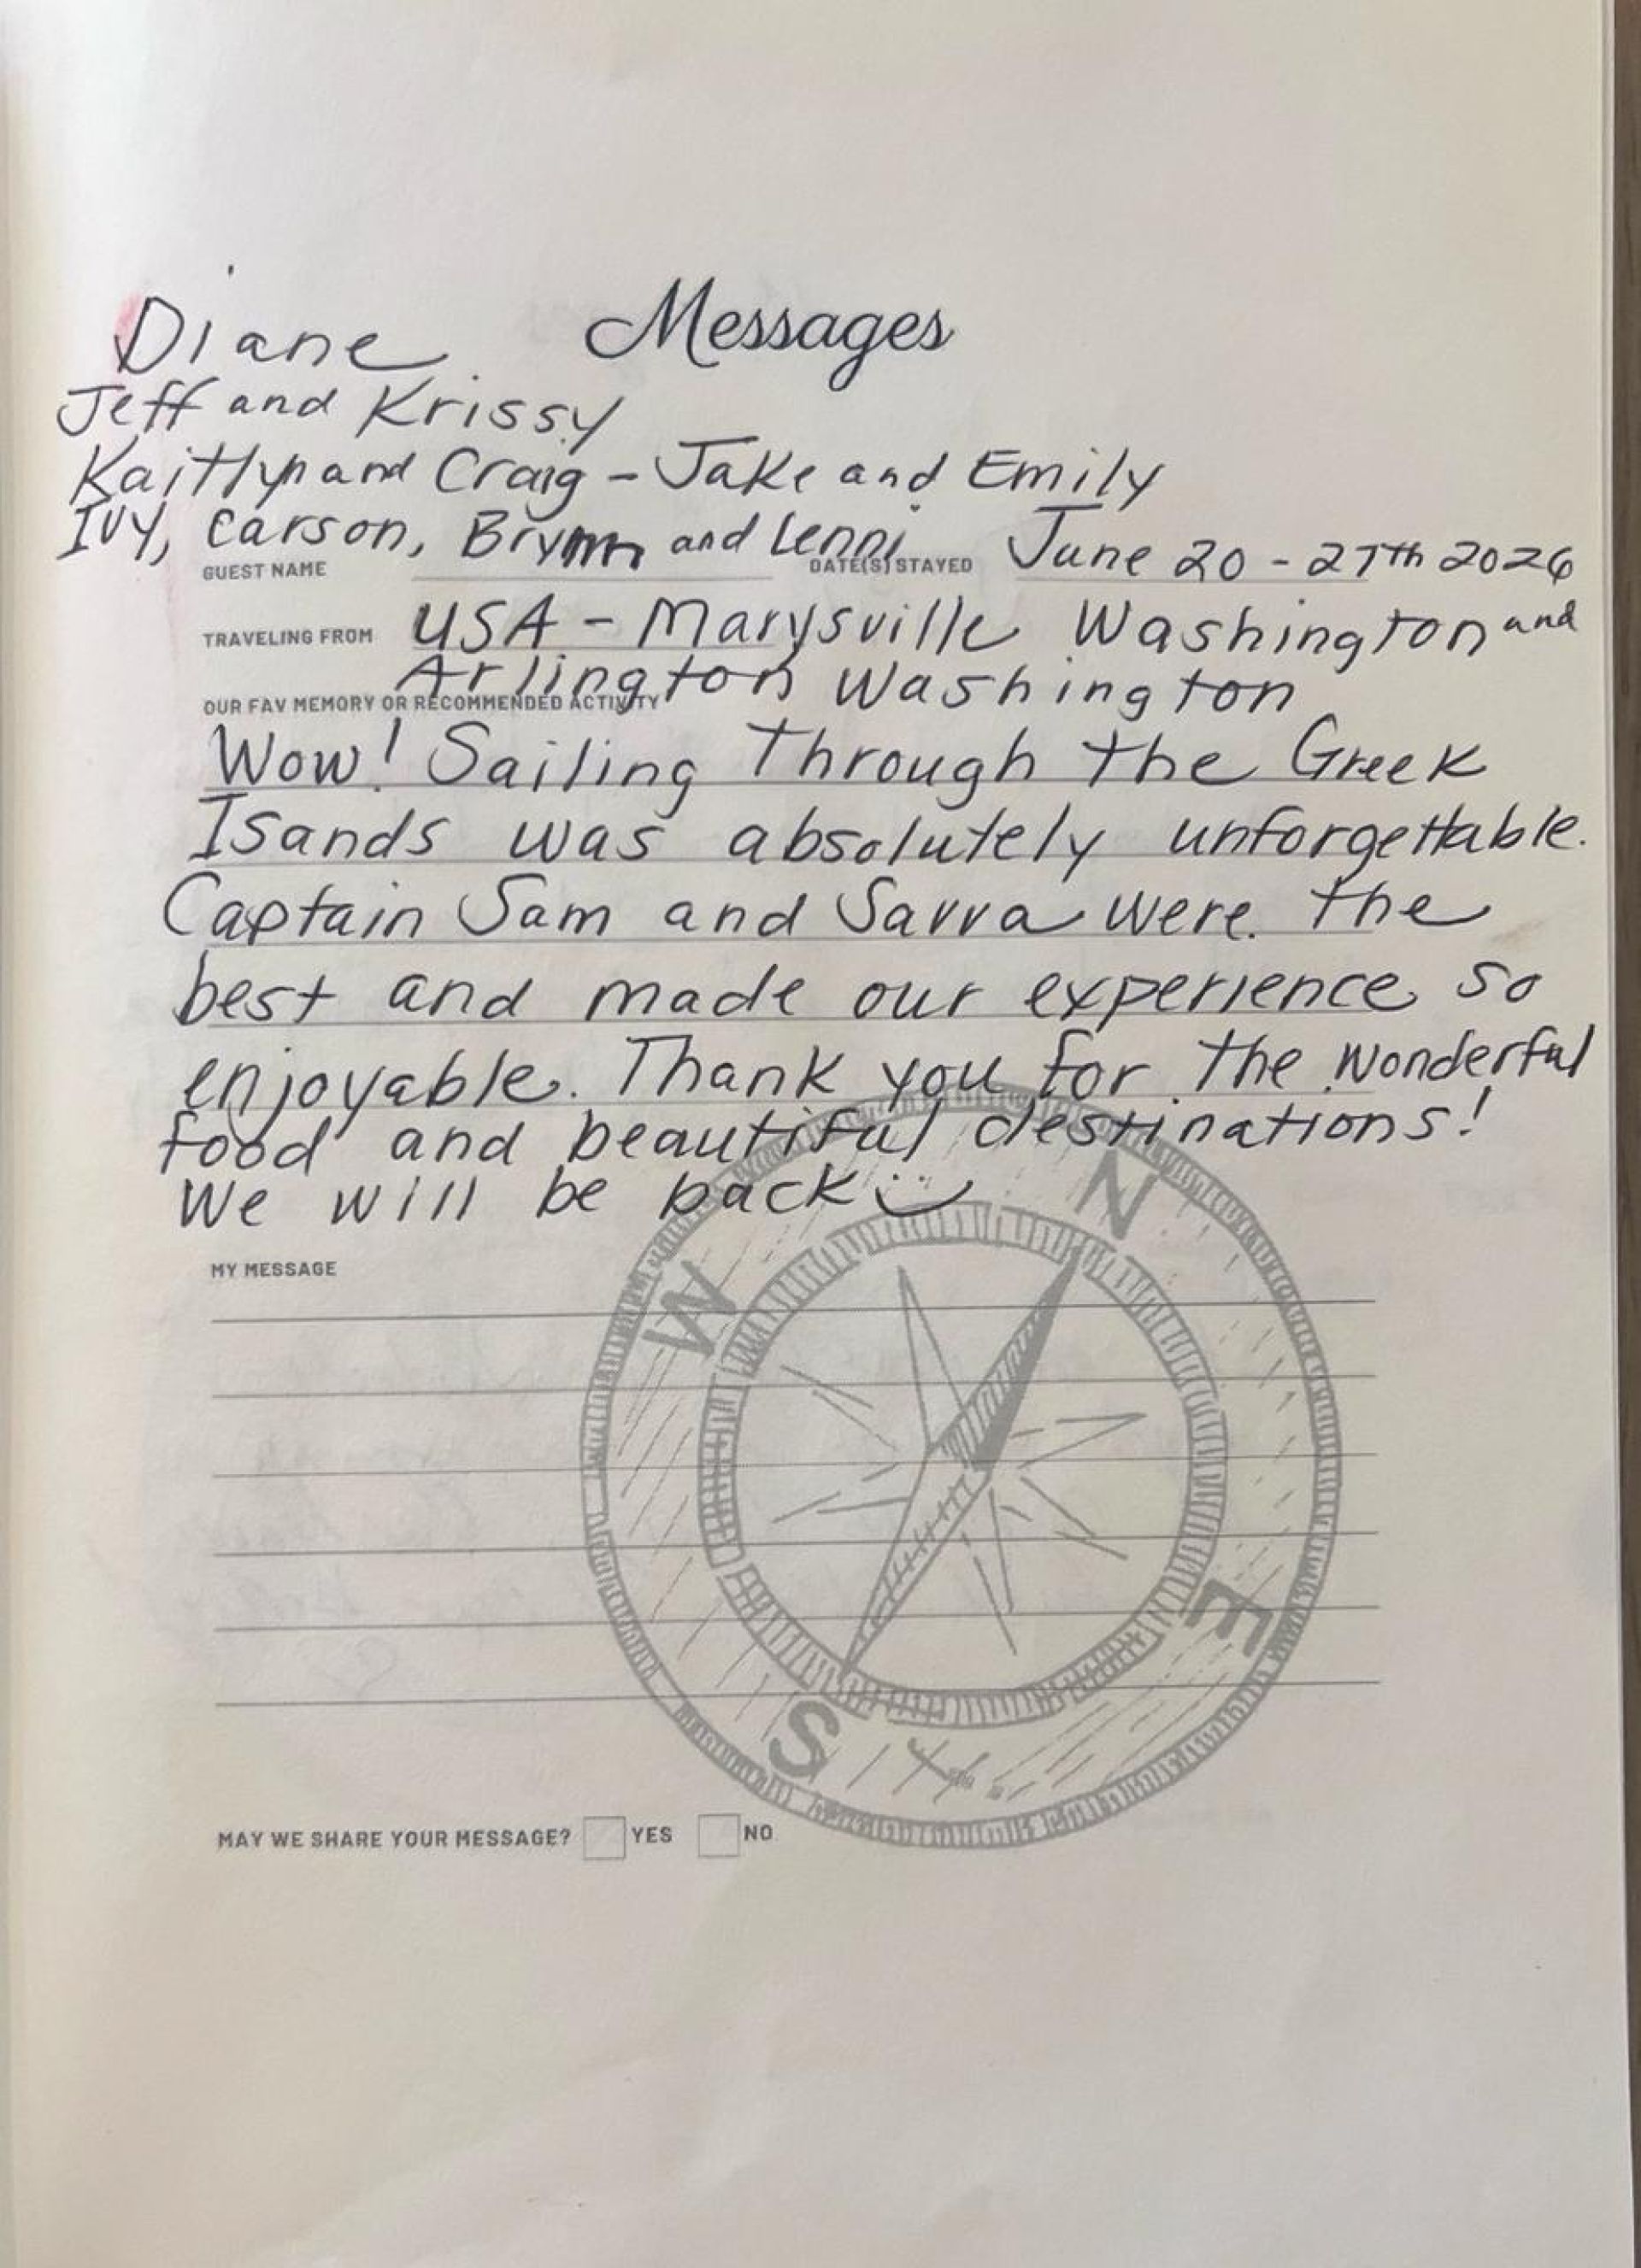 Diane Messages
Jeff and Krissy
Kaitlyn and Craig - Jake and Emily
Ivy, Carson, Brynn and Lenni June 20 - 27th 2026
GUEST NAME DATE(S) STAYED
TRAVELING FROM USA - Marysville Washington and
Arlington Washington
OUR FAV MEMORY OR RECOMMENDED ACTIVITY
Wow! Sailing Through the Greek
Isands was absolutely unforgettable.
Captain Sam and Savva were the
best and made our experience so
enjoyable. Thank you for the wonderful
food and beautiful destinations!
We will be back
N
MY MESSAGE
W
E
S
MAY WE SHARE YOUR MESSAGE? YES NO